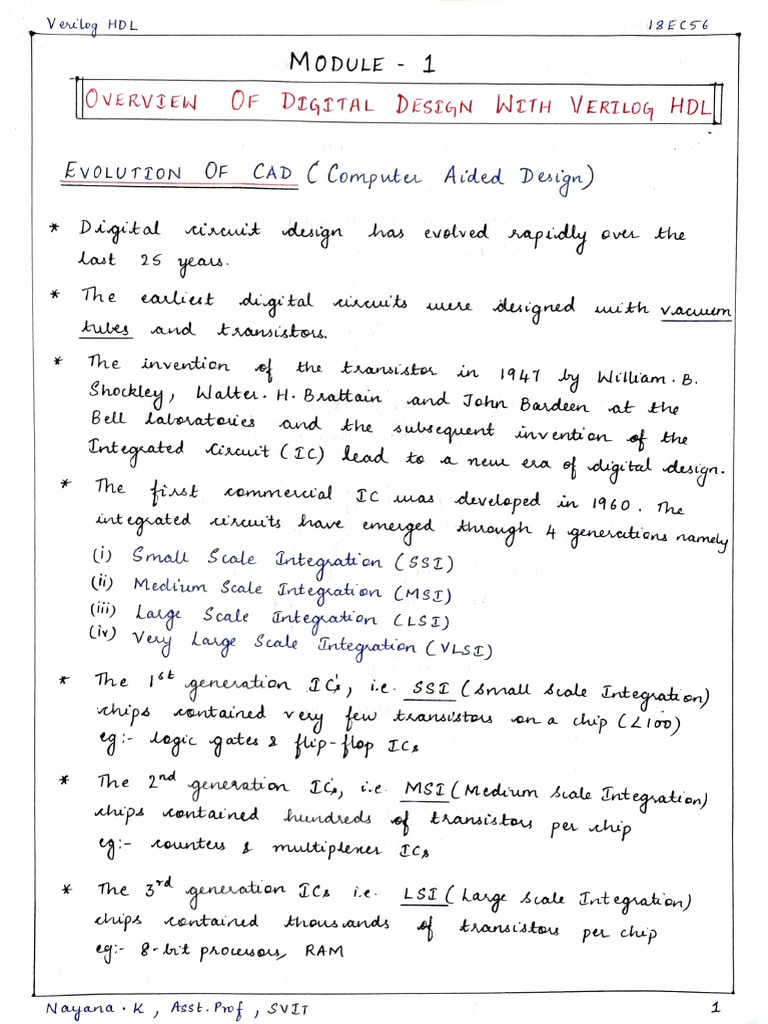 Verilog HDL
18EC56
MODULE - 1
OVERVIEW OF DIGITAL DESIGN WITH VERILOG HDL
EVOLUTION OF CAD (Computer Aided Design)
* Digital circuit design has evolved rapidly over the
last 25 years.
* The earliest digital circuits were designed with vacuum
tubes and transistors.
* The invention of the transistor in 1947 by William. B.
Shockley, Walter. H. Brattain and John Bardeen at the
Bell laboratories and the subsequent invention of the
Integrated Circuit (IC) lead to a new era of digital design.
* The first commercial IC was developed in 1960. The
integrated circuits have emerged through 4 generations namely
(i) Small Scale Integration (SSI)
(ii) Medium Scale Integration (MSI)
(iii) Large Scale Integration (LSI)
(iv) Very Large Scale Integration (VLSI)
* The 1st generation IC's, i.e. SSI (Small Scale Integration)
chips contained very few transistors on a chip (<100)
eg:- logic gates & flip-flop ICs
* The 2nd generation IC's, i.e. MSI (Medium Scale Integration)
chips contained hundreds of transistors per chip
eg:- counters & multiplexer ICs
* The 3rd generation ICs i.e. LSI (Large Scale Integration)
chips contained thousands of transistors per chip
eg:- 8-bit processors, RAM
Nayana.K, Asst.Prof, SVIT
1